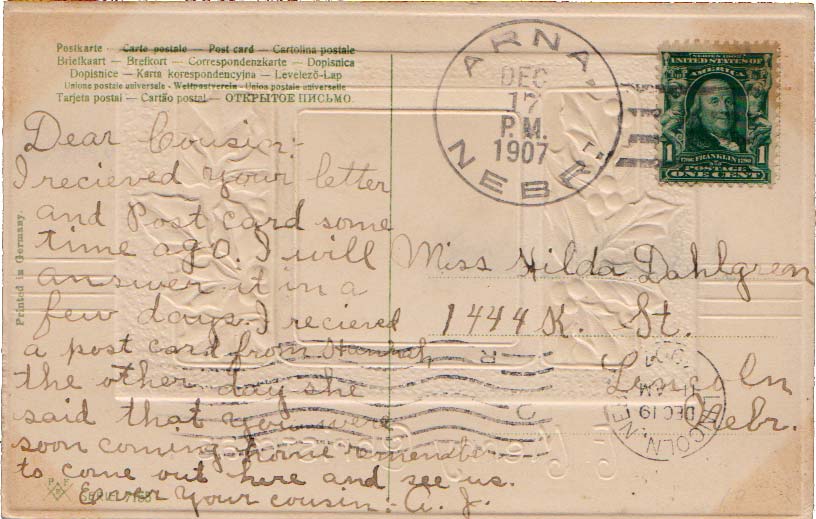 Postkarte — Carte postale — Post card — Cartolina postale
Briefkaart — Brefkort — Correspondenzkarte — Dopisnica
Dopisnice — Karta korespondencyjna — Levelező-Lap
Unione postale universale - Weltpostverein - Union postale universelle
Tarjeta postal — Cartão postal — ОТКРЫТОЕ ПИСЬМО.
ARNA
DEC
17
P.M.
1907
NEBR.
SERIES 1902
UNITED STATES OF
AMERICA
1706 FRANKLIN 1790
1 POSTAGE 1
ONE CENT
Dear Cousin:-
I recieved your letter
and Post card some
time ago. I will
answer it in a
few days. I recieved
a post card from Hannah
the other day she
said that you were
soon coming home remember
to come out here and see us.
Ever your cousin: A. J.
Miss Hilda Dahlgreen
1444 K. St.
Lincoln
Nebr.
LINCOLN, NEBR
DEC 19
AM
Printed in Germany.
P F B
SERIE 7165